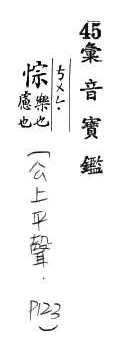 45彙音寶鑑
悰 樂也
慮也
(公上平聲.
P123)